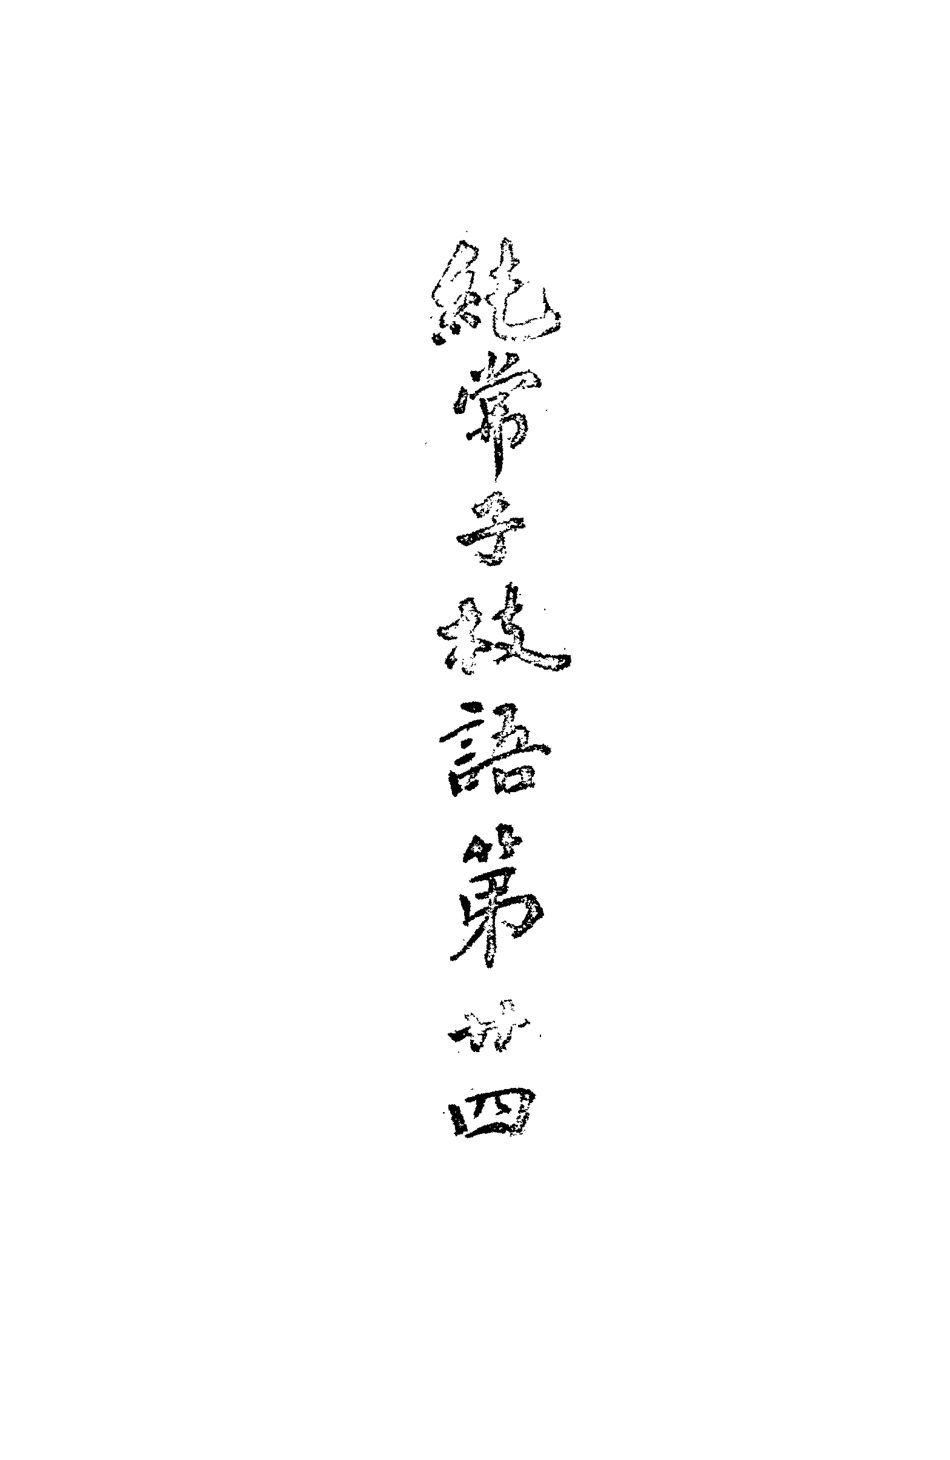 純常子枝語第廿四